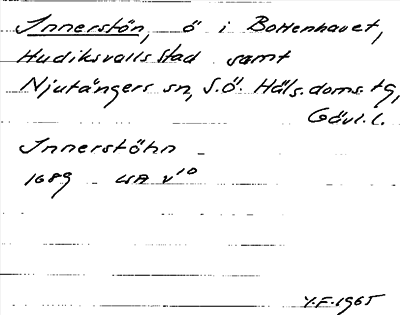 Innerstön, ö i Bottenhavet,
Hudiksvalls stad samt
Njutångers sn, S.ö. Häls. doms. tg,
Gävl. l.
Innerstöhn
1689 LSA V¹⁰
Y.F. 1965